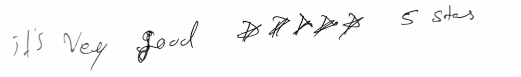 it's Vey good ☆☆☆☆☆ 5 stas